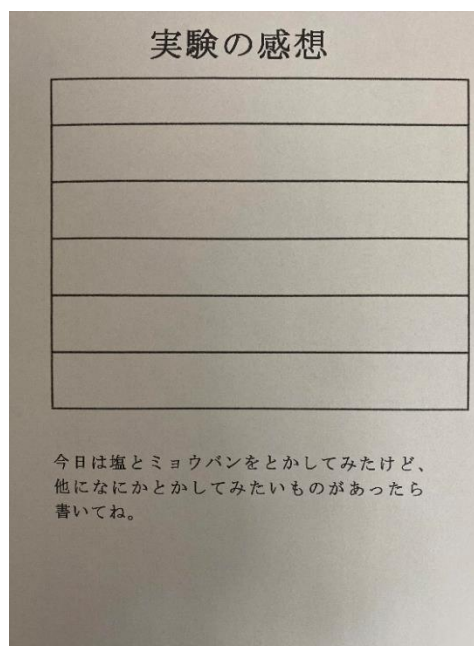 実験の感想
今日は塩とミョウバンをとかしてみたけど、
他になにかとかしてみたいものがあったら
書いてね。